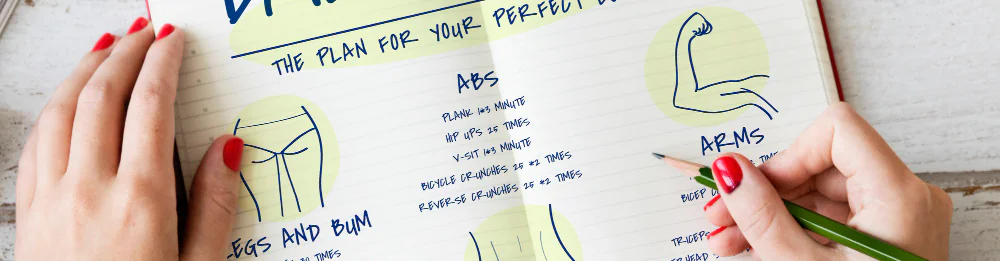 THE PLAN FOR YOUR PERFECT
ABS
PLANK 1*3 MINUTE
HIP UPS 25 TIMES
V-SIT 1*3 MINUTE
BICYCLE CRUNCHES 25 *2 TIMES
REVERSE CRUNCHES 25 *2 TIMES
EGS AND BUM
TIMES
ARMS
BICEP
TRICEPS